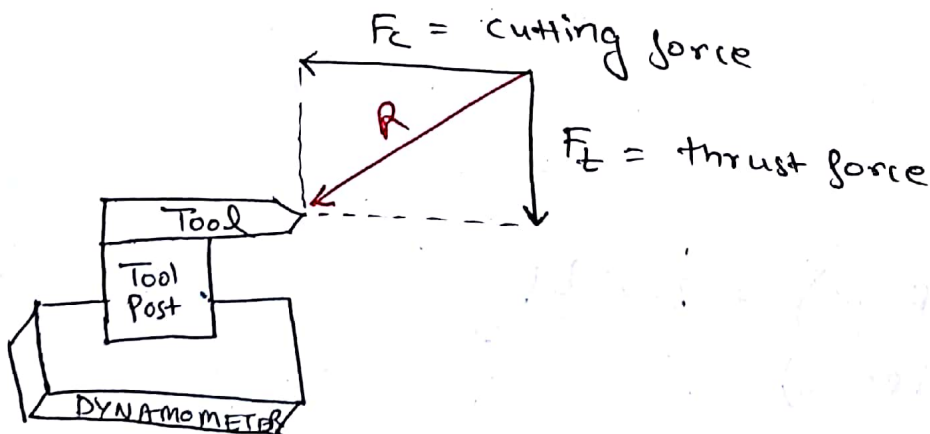 Fc = cutting force
R
Ft = thrust force
Tool
Tool
Post
DYNAMOMETER